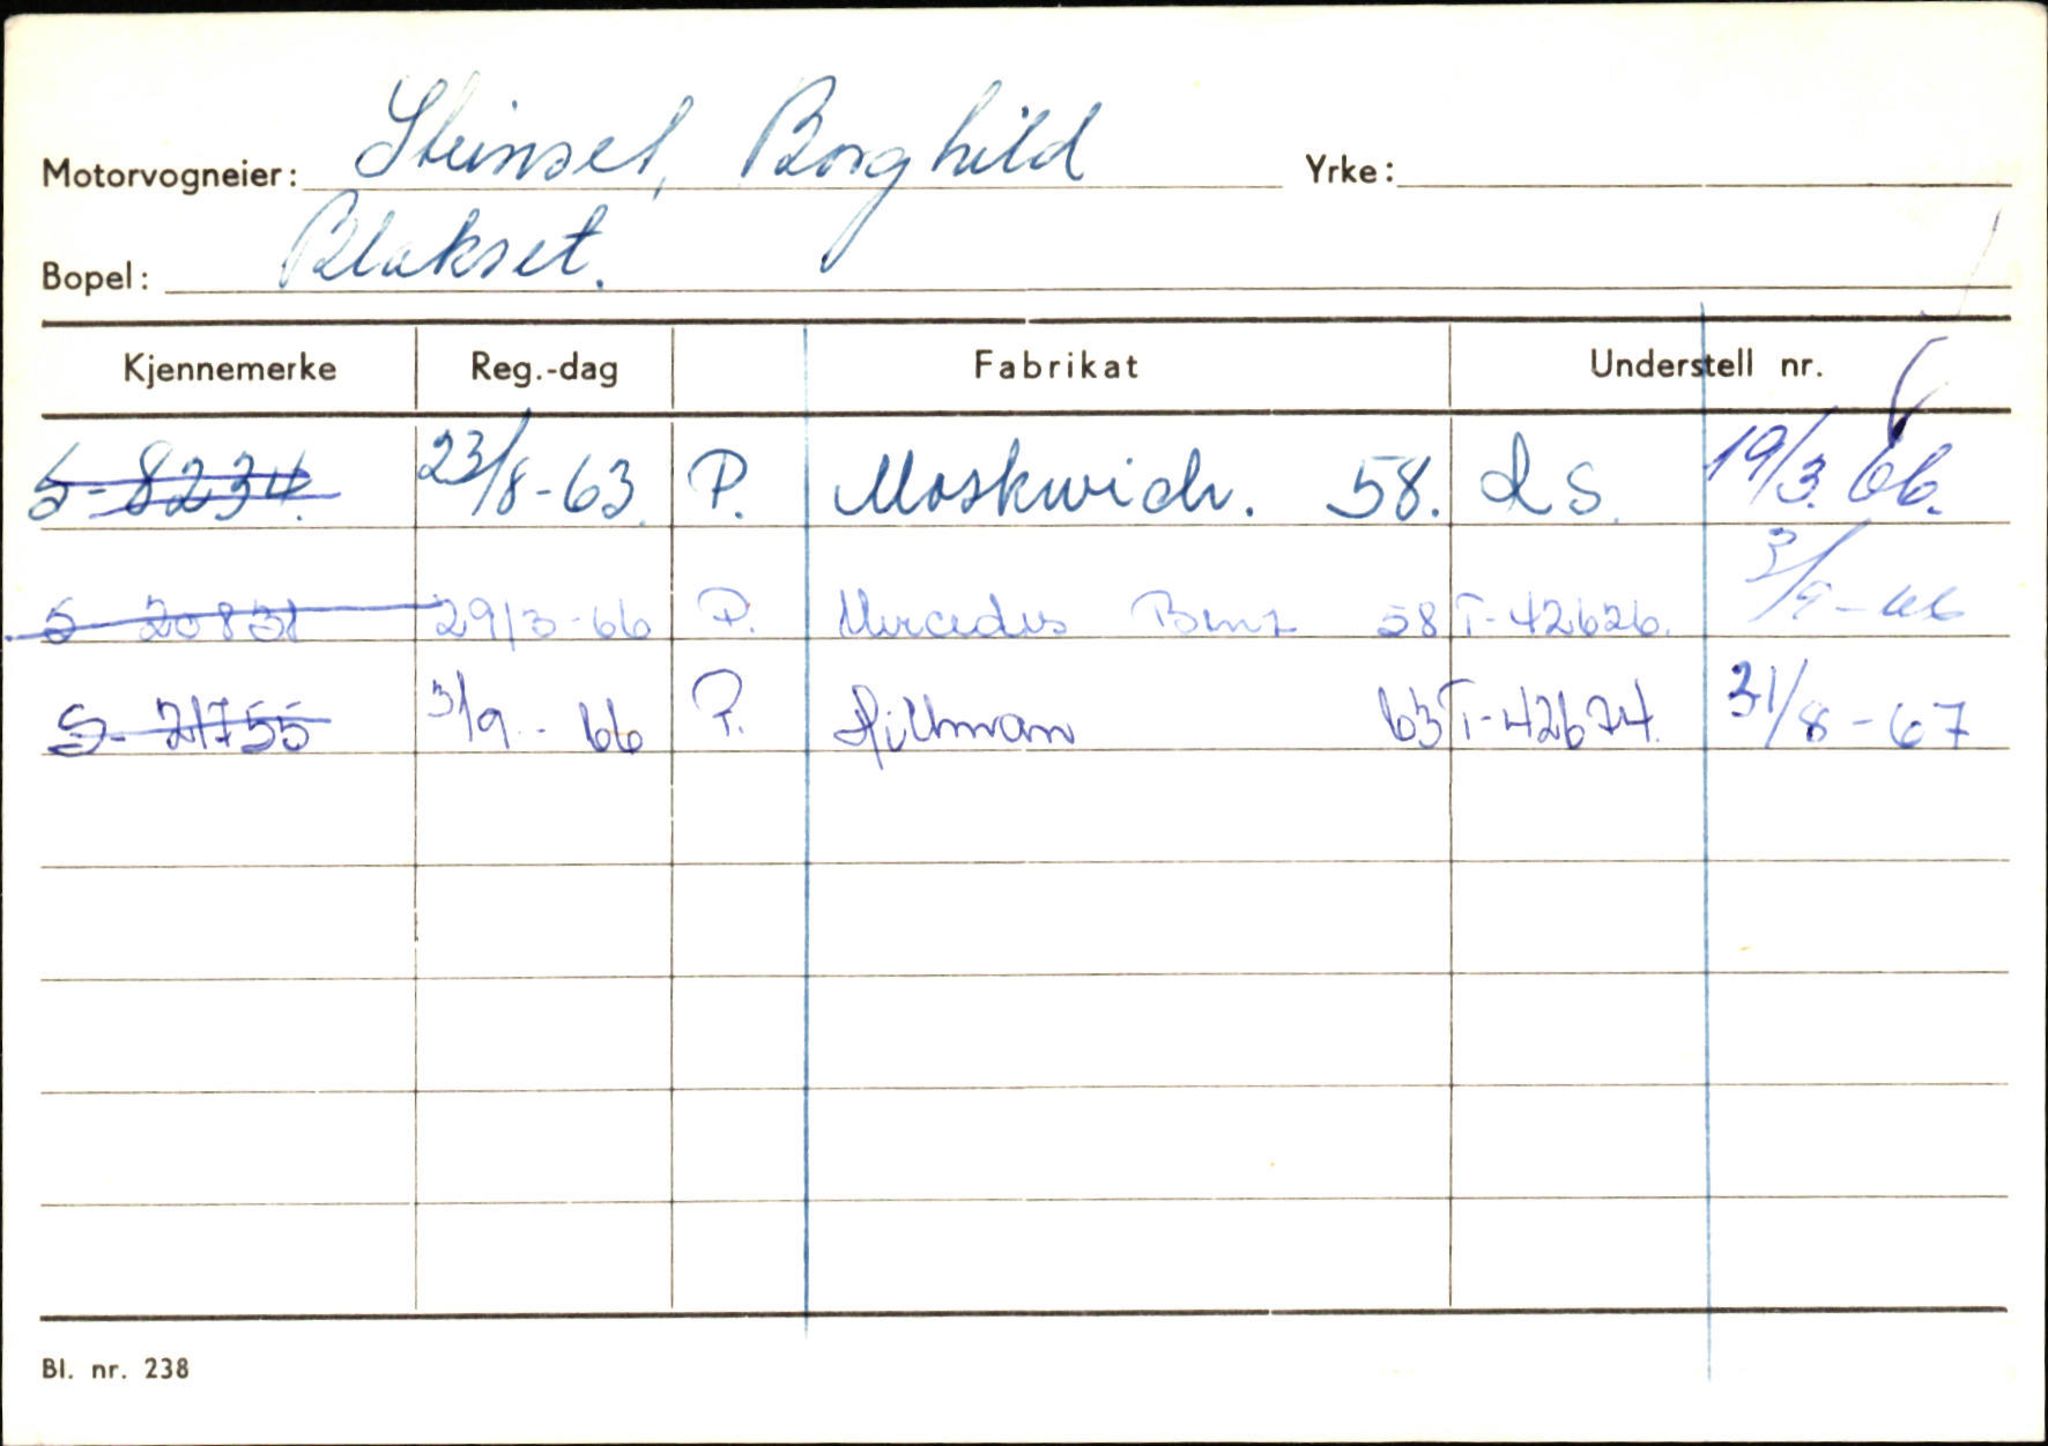 Motorvogneier: Steinset, Borghild Yrke:
Bopel: Blakset.
Kjennemerke Reg.-dag Fabrikat Understell nr.
S-8234. 23/8-63. P. Moskwich. 58. LS. 19/3. 66.
S 20831 29/3-66 P. Mercedes Benz 58 T-42626. 3/9-66
S-21755 3/9-66 P. Hillman 63 T-42674. 31/8-67
Bl. nr. 238